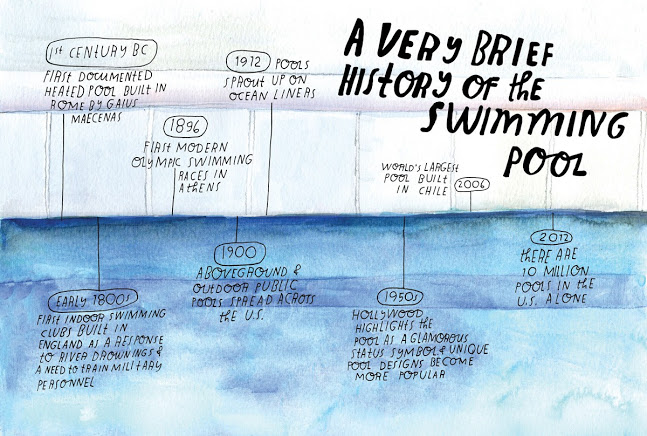 A VERY BRIEF
HISTORY OF the
SWIMMING
POOL
1st CENTURY BC
FIRST DOCUMENTED
HEATED POOL BUILT IN
ROME BY GAIUS
MAECENAS
EARLY 1800s
FIRST INDOOR SWIMMING
CLUBS BUILT IN
ENGLAND AS A RESPONSE
TO RIVER DROWNINGS &
A NEED TO TRAIN MILITARY
PERSONNEL
1896
FIRST MODERN
OLYMPIC SWIMMING
RACES IN
AThENS
1900
ABOVEGROUND &
OUTDOOR PUBLIC
POOLS SPREAD ACROSS
the U.S.
1912 POOLS
SPROUT UP ON
OCEAN LINERS
1950s
HOLLYWOOD
HIGHLIGHTS THE
POOL AS A GLAMOROUS
STATUS SYMBOL & UNIQUE
POOL DESIGNS BECOME
MORE POPULAR
WORLD'S LARGEST
POOL BUILT
IN CHILE 2006
2012
thERE ARE
10 MILLION
POOLS IN THE
U.S. ALONE